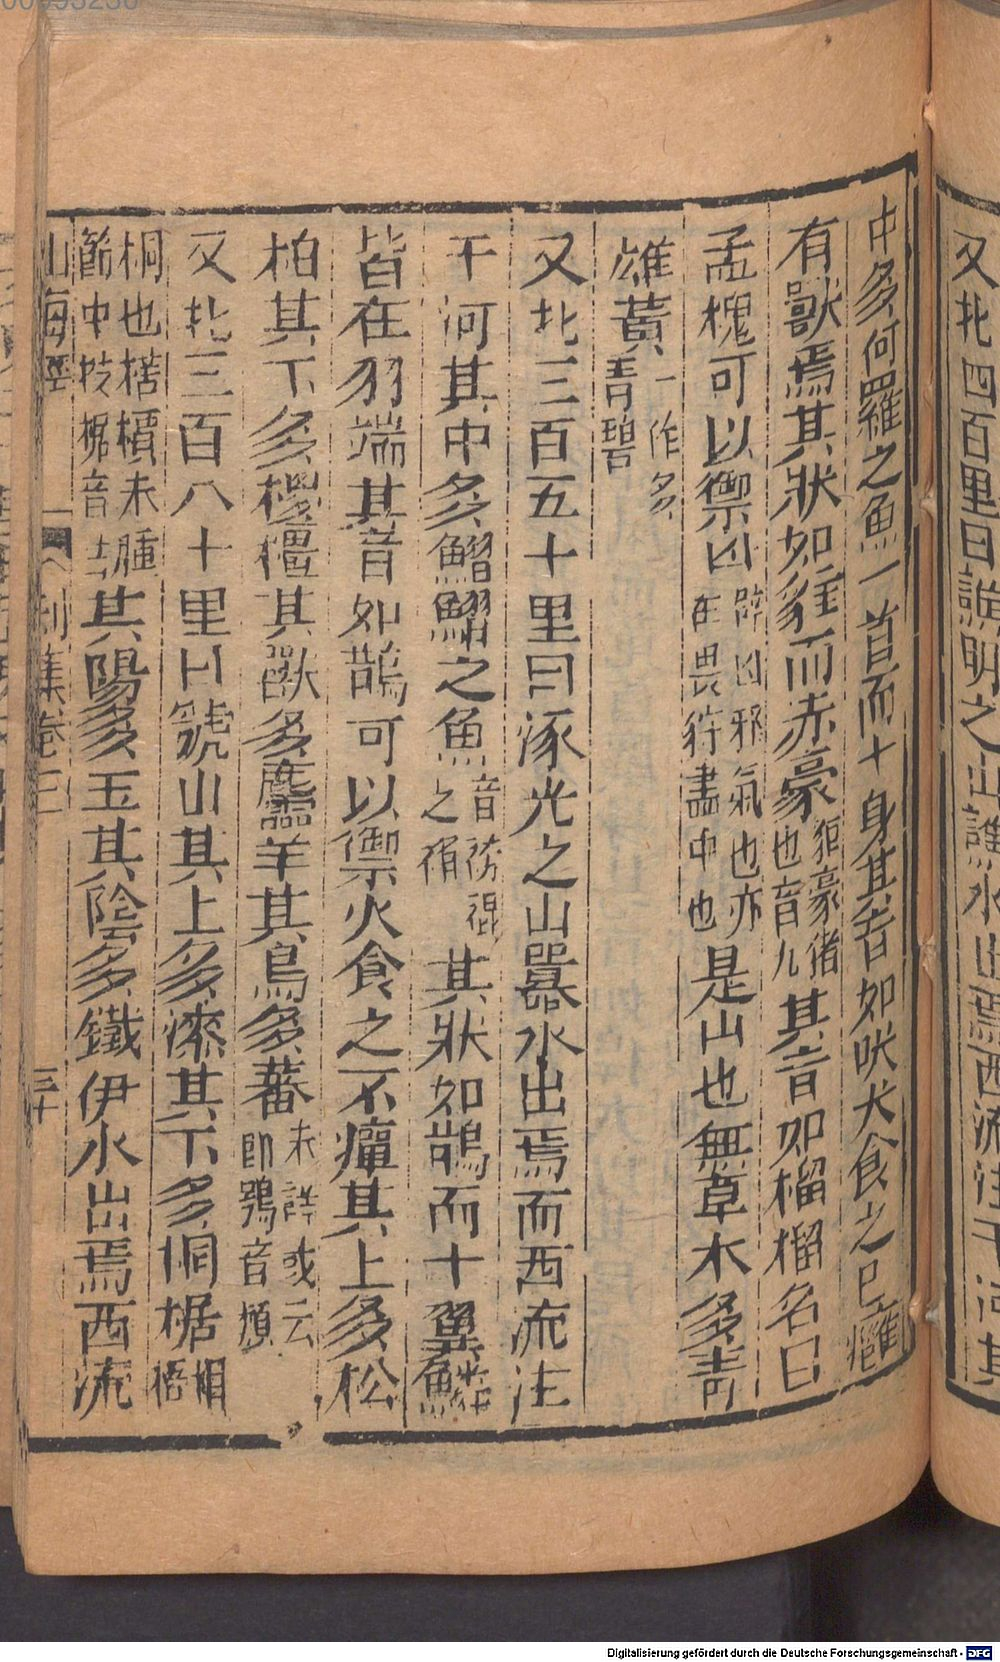 又北四百里曰譙明之山譙水出焉西流注于河其
中多何羅之魚一首而十身其音如吠犬食之已癰
有獸焉其狀如貆而赤豪貆豪猪也音丸其音如榴榴名曰
孟槐可以禦凶辟凶邪氣也亦在畏狩畫中也是山也無草木多青
雄黃一作多青碧
又北三百五十里曰涿光之山嚻水出焉而西流注
于河其中多鰼鰼之魚音袴褶之褶其狀如鵲而十翼鱗
皆在羽端其音如鵲可以禦火食之不癉其上多松
柏其下多椶橿其獸多麢羊其鳥多蕃未詳或云即鴞音煩
又北三百八十里曰虢山其上多漆其下多桐椐桐梧
桐也椐樻木腫節中杖椐音 其陽多玉其陰多鐵伊水出焉西流
山海經 集卷三 三十